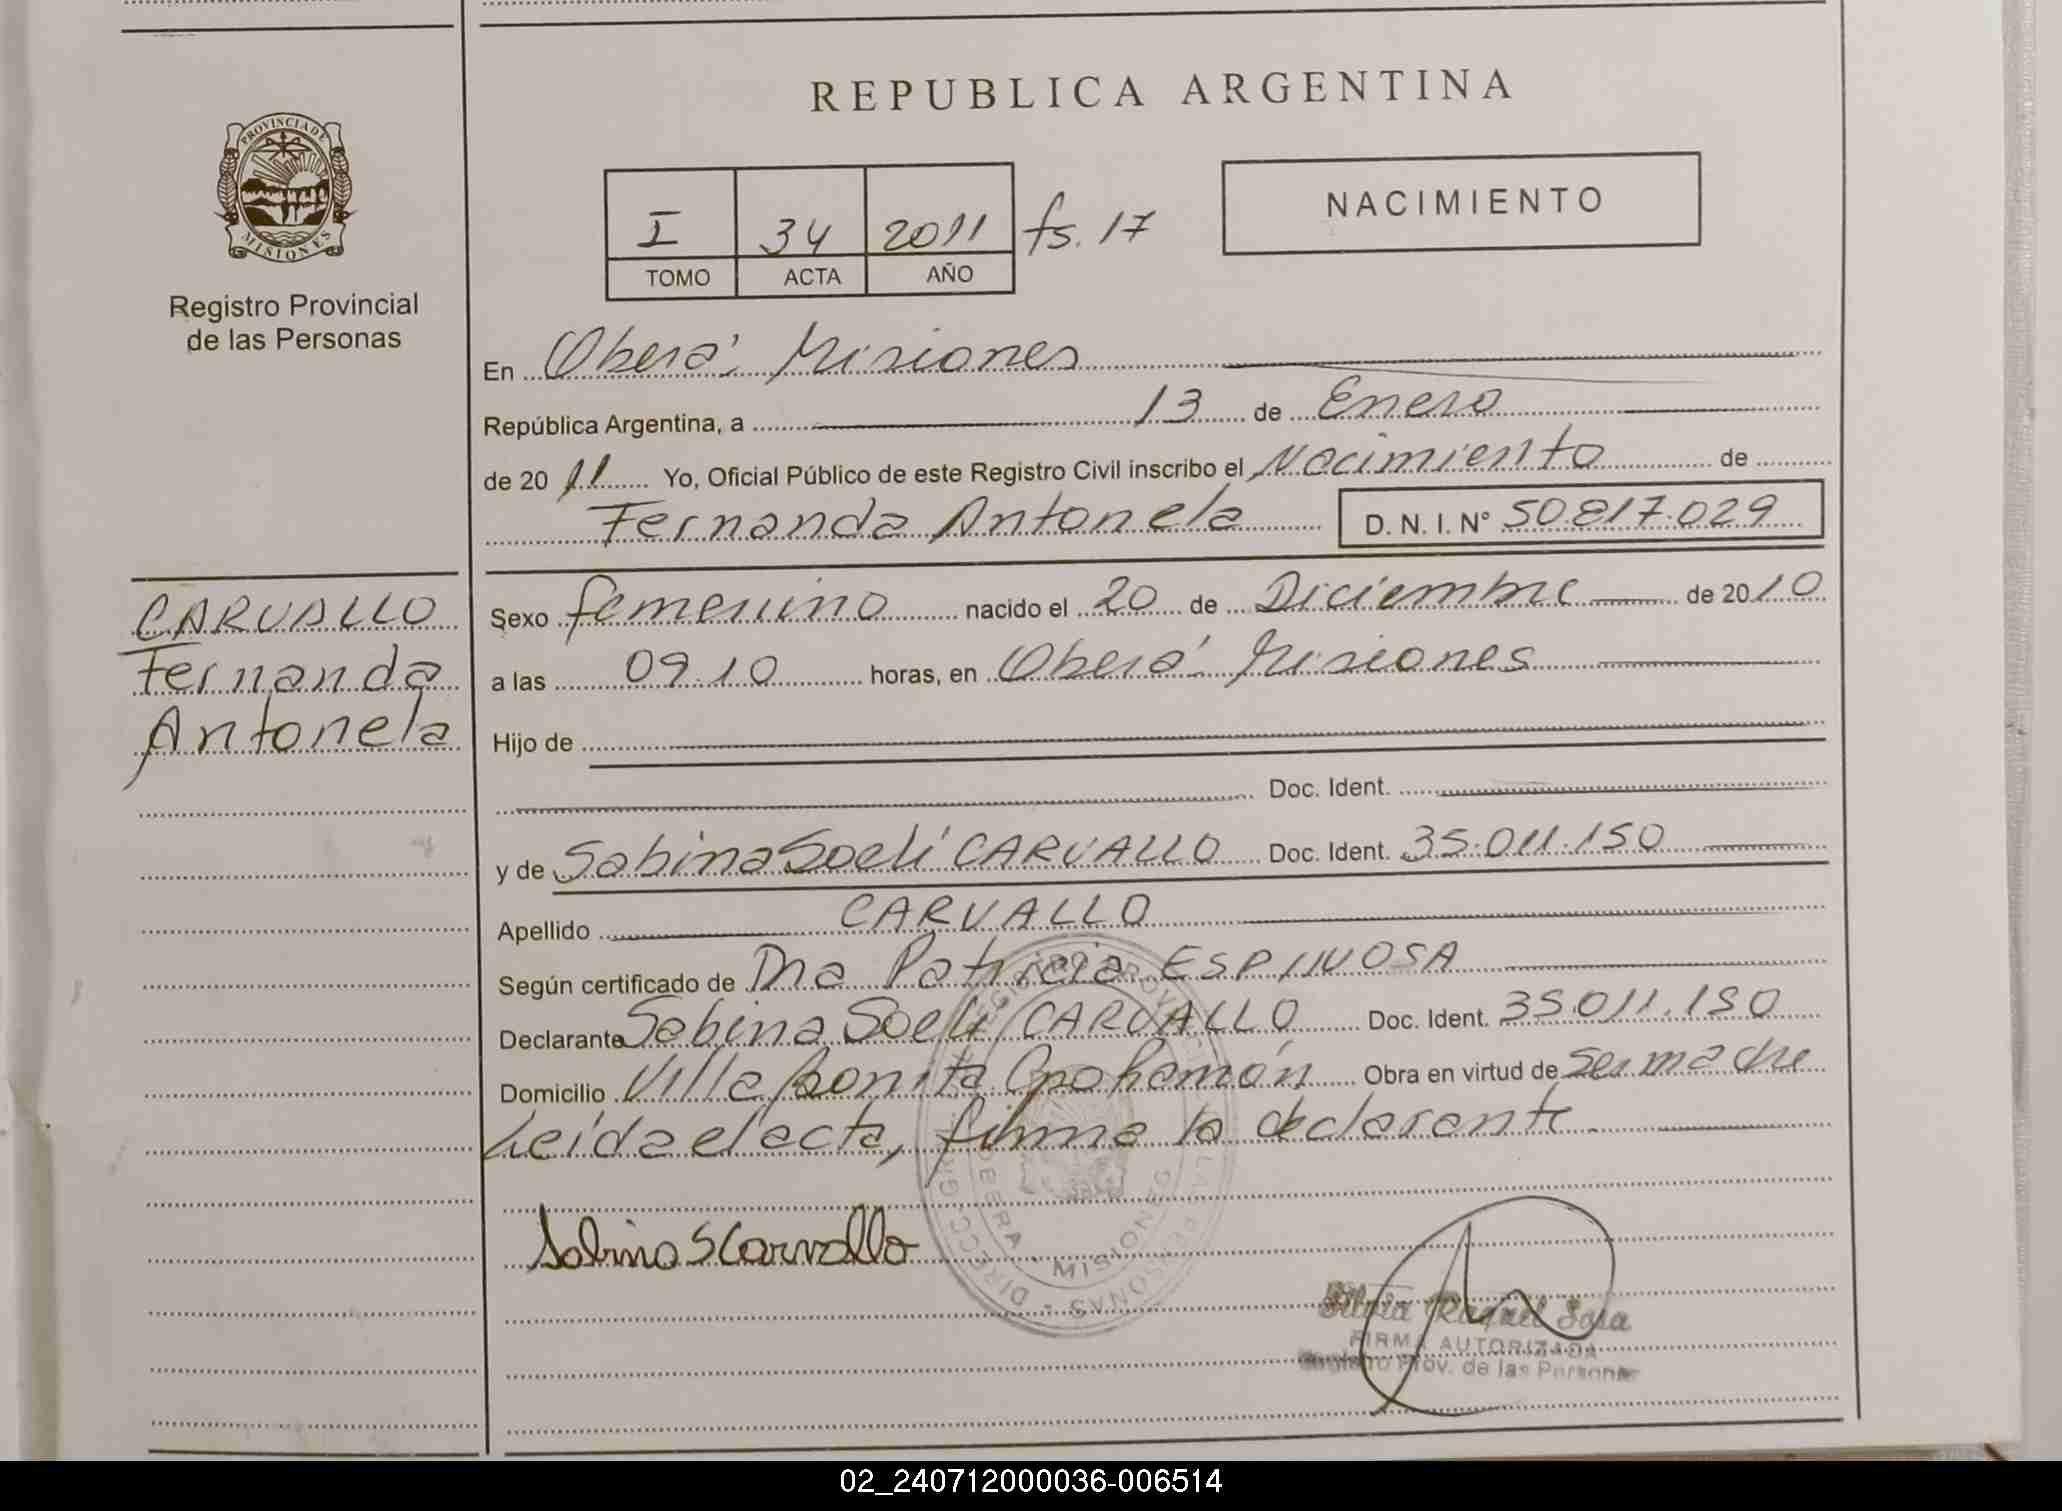 REPUBLICA ARGENTINA
PROVINCIA DE
MISIONES
Registro Provincial
de las Personas
I 34 2011 fs. 17
TOMO ACTA AÑO
NACIMIENTO
En Oberá, Misiones
República Argentina, a 13 de Enero
de 2011 Yo, Oficial Público de este Registro Civil inscribo el Nacimiento de
Fernanda Antonela D. N. I. N° 50.817.029
CARVALLO
Fernanda
Antonela
Sexo femenino nacido el 20 de Diciembre de 2010
a las 09.10 horas, en Oberá Misiones
Hijo de
Doc. Ident.
y de Sabina Soelí CARVALLO Doc. Ident. 35.011.150
Apellido CARVALLO
Según certificado de Dra Patricia ESPINOSA
Declarante Sabina Soelí CARVALLO Doc. Ident. 35.011.150
Domicilio Villa Bonita Obra en virtud de ser madre
Leída el acta, firma la declarante.
Sabina S Carvallo
MISIONES
Raquel Sosa
FIRMA AUTORIZADA
Registro Prov. de las Personas
02_240712000036-006514